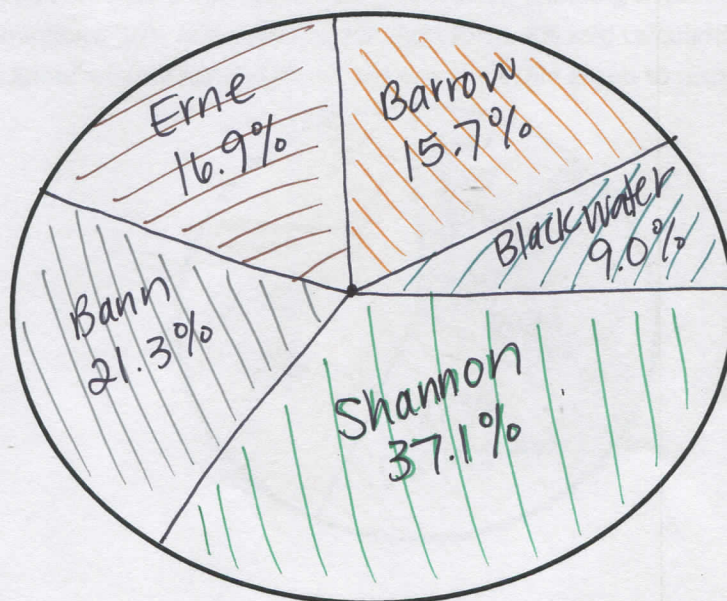 Erne
16.9%
Barrow
15.7%
Blackwater
9.0%
Bann
21.3%
Shannon
37.1%